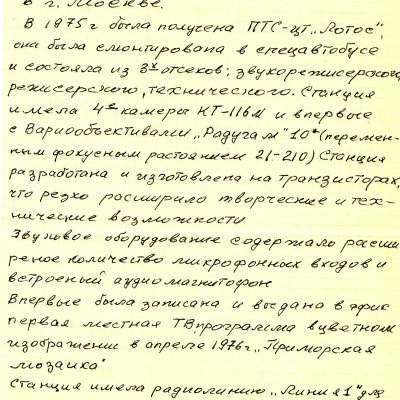 в г. Москве.
В 1975г была получена ПТС-цт „Лотос",
она была смонтирована в спецавтобусе
и состояла из 3х отсеков: звукорежиссерского,
режисерского, технического. Станция
имела 4е камеры КТ-116м и впервые
с Вариообъективами „Радуга м" 10х (перемен-
ным фокусным растоянием 21-210) Станция
разработана и изготовлена на транзисторах,
что резко расширило творческие и тех-
нические возможности
Звуковое оборудование содержало расши
реное количество микрофонных входов и
встроеный аудиомагнитофон
Впервые была записана и выдана в эфир
первая местная ТВ.программа в цветном
изображении в апреле 1976г „Приморская
мозаика"
Станция имела радиолинию „Линия 1" для